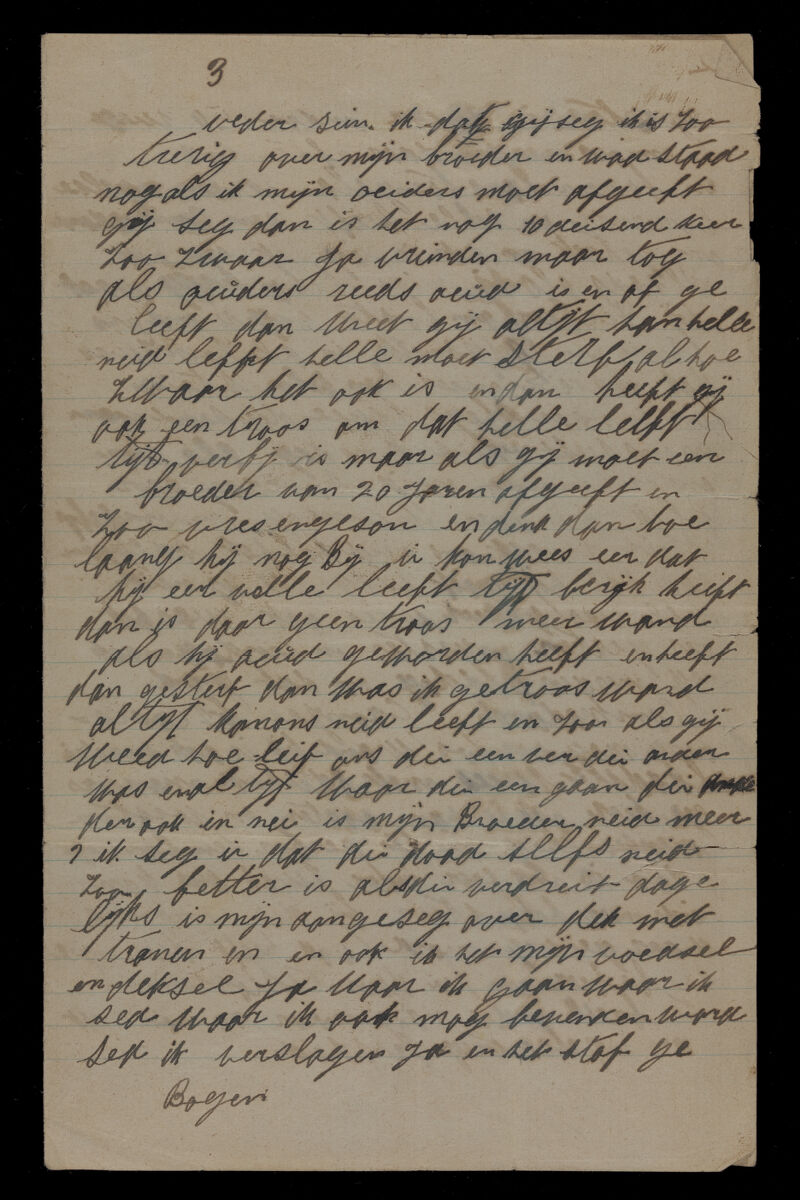 3
veder sein. ik dag gij seg ik is zoo
trerig over mijn broeder en wad staad
nog als ik mijn oeiders moet afgeeft
gij seg dan is het nog 10 deisend keer
zoo zwaar Ja vrinden maar tog
als oeuders reeds oeud is en af ge
leeft dan weet gij altijt kan helle
neid lefft helle moet sterf al hoe
zwaar het ook is en dan heeft gij
ook een troos om dat helle leift
tijt verbij is maar als gij moet een
broeder van 20 Jaren afgeeft en
zoo vres en geson en denk dan hoe
laang hij nog Bij ir kon wees eer dat
hij eer volle leeft tijt berijk heift
dan is daar geen troos meer wand
als hij oeud geworden heeft en heeft
dan gesterf dan was ik getroos ward
altijt kan ons neid leeft en zoo als gij
weed hoe leif ons die een ver die ander
was en altijt waar die een gaan die
der ook in nei is mijn Broeder neid meer
? ik seg ir dat die dood sllfs neid
zoo better is als die verdreit dage
lijks is mijn aangeseg over dek met
tranen en en ook ik het mijn voedsel
en deksel Ja waar ik gaan waar ik
sed waar ik ook mag bevenden word
sed ik verslagen Ja en het stof ge
Bogen